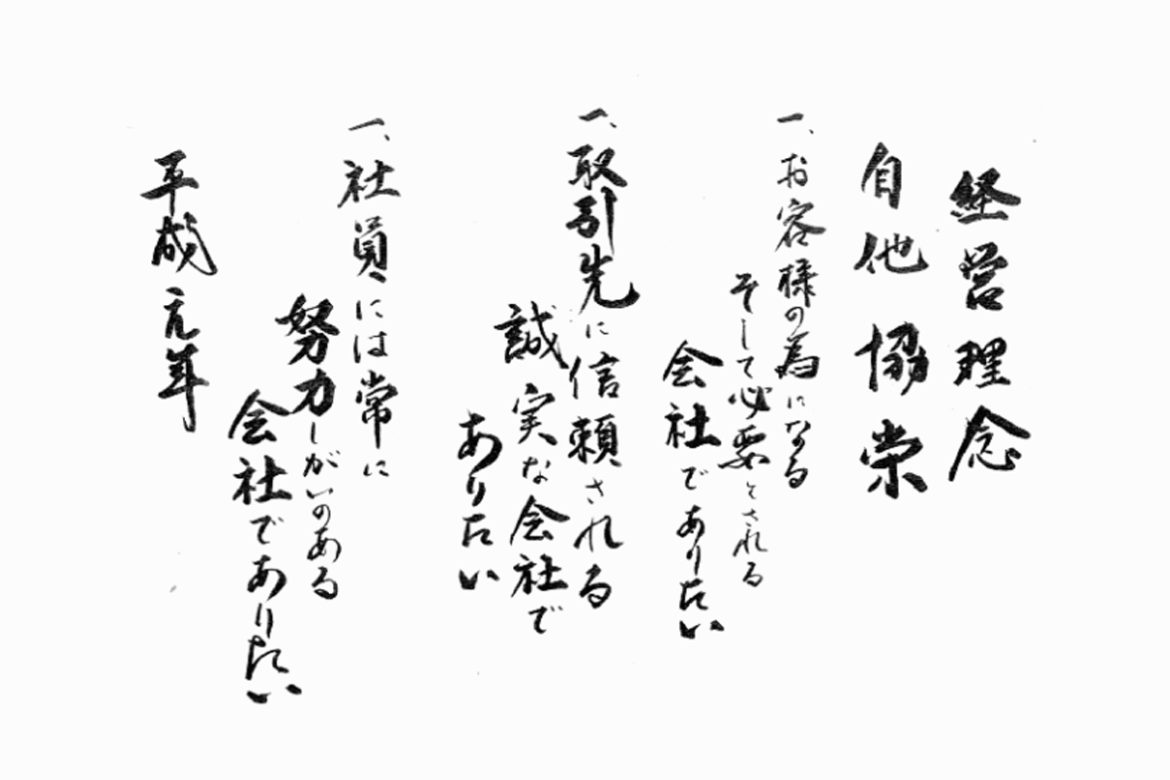 経営理念
自他協栄
一、お客様の為になる
そして必要とされる
会社でありたい
一、取引先に信頼される
誠実な会社で
ありたい
一、社員には常に
努力しがいのある
会社でありたい
平成元年